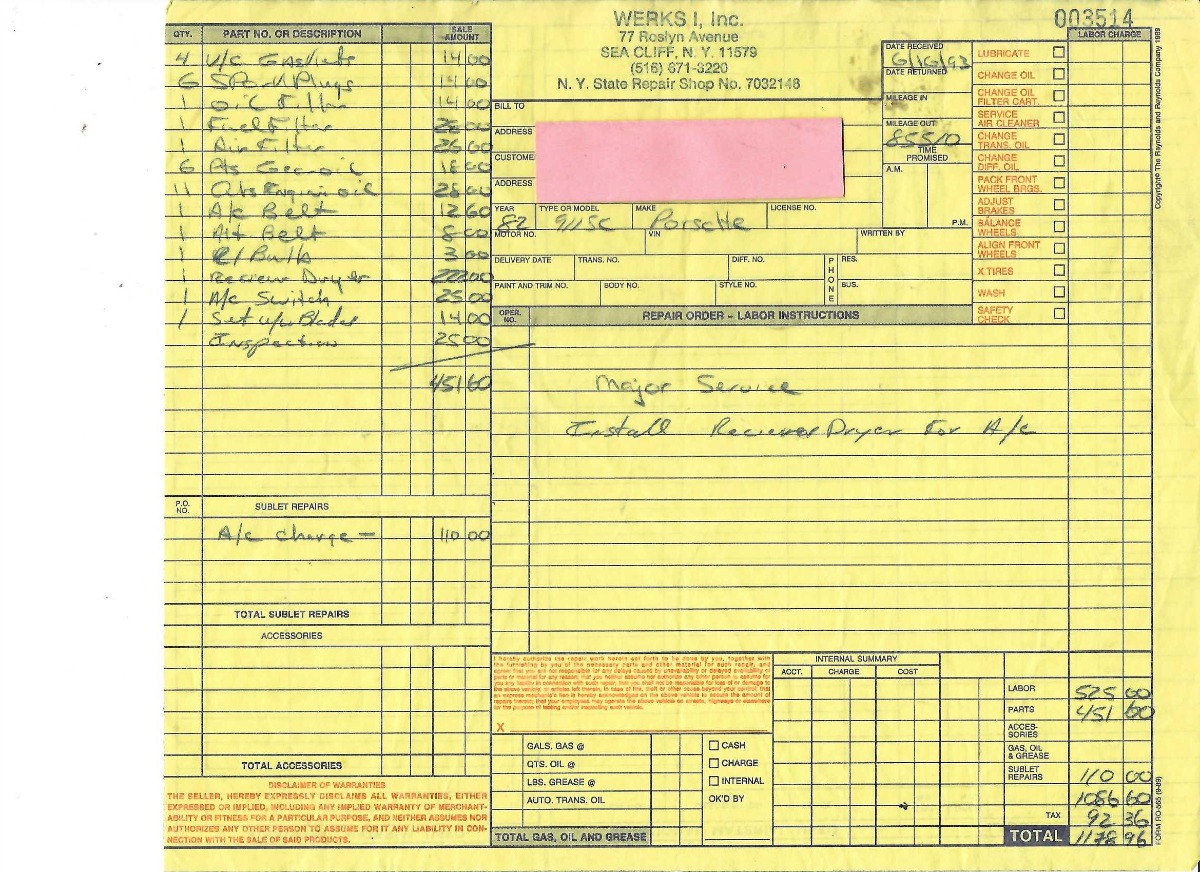 WERKS I, Inc.
77 Roslyn Avenue
SEA CLIFF, N. Y. 11579
(516) 671-3220
N. Y. State Repair Shop No. 7032148
003514
QTY. PART NO. OR DESCRIPTION SALE AMOUNT
4 V/c Gaskets 14 00
6 Spark Plugs 14 00
1 Oil Filter 14 00
1 Fuel Filter 00
1 Air Filter 26 00
6 Pts Gear oil 18 00
11 Qts Engine oil 28 00
1 A/c Belt 12 60
1 Alt Belt 8 00
1 Bulb 3 00
1 Reciever Dryer 222 00
1 A/c Switch 25 00
1 Set w/w Blades 14 00
Inspection 25 00
451 60
P.O. NO. SUBLET REPAIRS
A/c Charge - 110 00
TOTAL SUBLET REPAIRS
ACCESSORIES
TOTAL ACCESSORIES
DISCLAIMER OF WARRANTIES
THE SELLER, HEREBY EXPRESSLY DISCLAIMS ALL WARRANTIES, EITHER
EXPRESSED OR IMPLIED, INCLUDING ANY IMPLIED WARRANTY OF MERCHANT-
ABILITY OR FITNESS FOR A PARTICULAR PURPOSE, AND NEITHER ASSUMES NOR
AUTHORIZES ANY OTHER PERSON TO ASSUME FOR IT ANY LIABILITY IN CON-
NECTION WITH THE SALE OF SAID PRODUCTS.
BILL TO
ADDRESS
CUSTOME
ADDRESS
DATE RECEIVED
6/16/93
DATE RETURNED
MILEAGE IN
MILEAGE OUT
85510
TIME PROMISED
A.M.
P.M.
YEAR TYPE OR MODEL MAKE LICENSE NO.
82 911SC Porsche
MOTOR NO. VIN WRITTEN BY
DELIVERY DATE TRANS. NO. DIFF. NO. PHONE RES.
PAINT AND TRIM NO. BODY NO. STYLE NO. BUS.
LABOR CHARGE
LUBRICATE
CHANGE OIL
CHANGE OIL FILTER CART.
SERVICE AIR CLEANER
CHANGE TRANS. OIL
CHANGE DIFF. OIL
PACK FRONT WHEEL BRGS.
ADJUST BRAKES
BALANCE WHEELS
ALIGN FRONT WHEELS
X TIRES
WASH
SAFETY CHECK
OPER. NO. REPAIR ORDER - LABOR INSTRUCTIONS
Major Service
Install Reciever Dryer For A/c
I hereby authorize the repair work herein set forth to be done by you, together with
the furnishing by you of the necessary parts and other material for such repair, and
agree that you are not responsible for any delays caused by unavailability or delayed availability of
parts or material for any reason; that you neither assume nor authorize any other person to assume for
you any liability in connection with such repair; that you shall not be responsible for loss of or damage to
the above vehicle, or articles left therein, in case of fire, theft or other cause beyond your control; that
an express mechanic's lien is hereby acknowledged on the above vehicle to secure the amount of
repairs thereto; that your employees may operate the above vehicle on streets, highways or elsewhere
for the purpose of testing and/or inspecting such vehicle.
X
GALS. GAS @
QTS. OIL @
LBS. GREASE @
AUTO. TRANS. OIL
TOTAL GAS, OIL AND GREASE
CASH
CHARGE
INTERNAL
OK'D BY
INTERNAL SUMMARY
ACCT. CHARGE COST
LABOR 525 00
PARTS 451 60
ACCES-SORIES
GAS, OIL & GREASE
SUBLET REPAIRS 110 00
1086 60
TAX 92 36
TOTAL 1178 96
Copyright© The Reynolds and Reynolds Company 1989
FORM RO-565 (9-89)